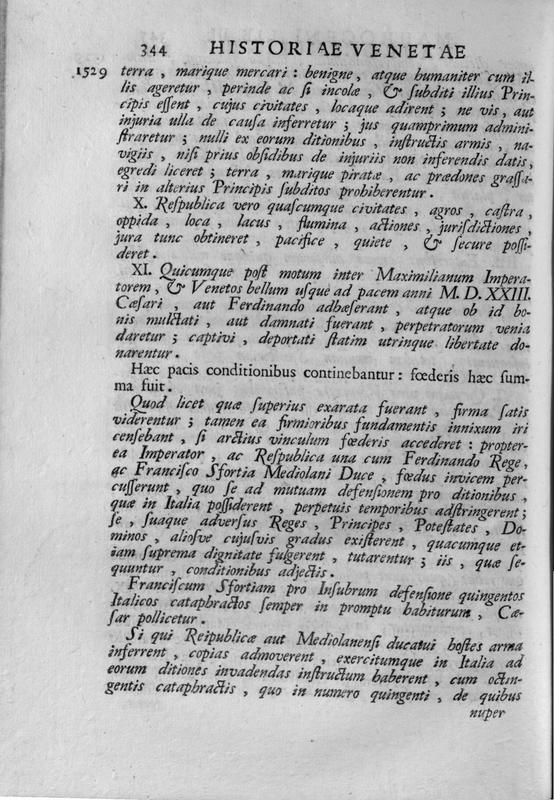 344 HISTORIAE VENETAE
1529 terra, marique mercari: benigne, atque humaniter cum il-
lis ageretur, perinde ac si incolæ, & subditi illius Prin-
cipis essent, cujus civitates, locaque adirent; ne vis, aut
injuria ulla de causa inferretur; jus quamprimum admini-
straretur; nulli ex eorum ditionibus, instructis armis, na-
vigiis, nisi prius obsidibus de injuriis non inferendis datis,
egredi liceret; terra, marique piratæ, ac prædones grassa-
ri in alterius Principis subditos prohiberentur.
X. Respublica vero quascumque civitates, agros, castra,
oppida, loca, lacus, flumina, actiones, jurisdictiones,
jura tunc obtineret, pacifice, quiete, & secure possi-
deret.
XI. Quicumque post motum inter Maximilianum Impera-
torem, & Venetos bellum usque ad pacem anni M. D. XXIII.
Cæsari, aut Ferdinando adhæserant, atque ob id bo-
nis mulctati, aut damnati fuerant, perpetratorum venia
daretur; captivi, deportati statim utrinque libertate do-
narentur.
Hæc pacis conditionibus continebantur: fœderis hæc sum-
ma fuit.
Quod licet quæ superius exarata fuerant, firma satis
viderentur; tamen ea firmioribus fundamentis innixum iri
censebant, si arctius vinculum fœderis accederet: propter-
ea Imperator, ac Respublica una cum Ferdinando Rege,
ac Francisco Sfortia Mediolani Duce, fœdus invicem per-
cusserunt, quo se ad mutuam defensionem pro ditionibus,
quæ in Italia possiderent, perpetuis temporibus adstringerent;
se, suaque adversus Reges, Principes, Potestates, Do-
minos, aliosve cujusvis gradus existerent, quacumque et-
iam suprema dignitate fulgerent, tutarentur; iis, quæ se-
quuntur, conditionibus adjectis.
Franciscum Sfortiam pro Insubrum defensione quingentos
Italicos cataphractos semper in promptu habiturum, Cæ-
sar pollicetur.
Si qui Reipublicæ aut Mediolanensi ducatui hostes arma
inferrent, copias admoverent, exercitumque in Italia ad
eorum ditiones invadendas instructum haberent, cum octin-
gentis cataphractis, quo in numero quingenti, de quibus
nuper